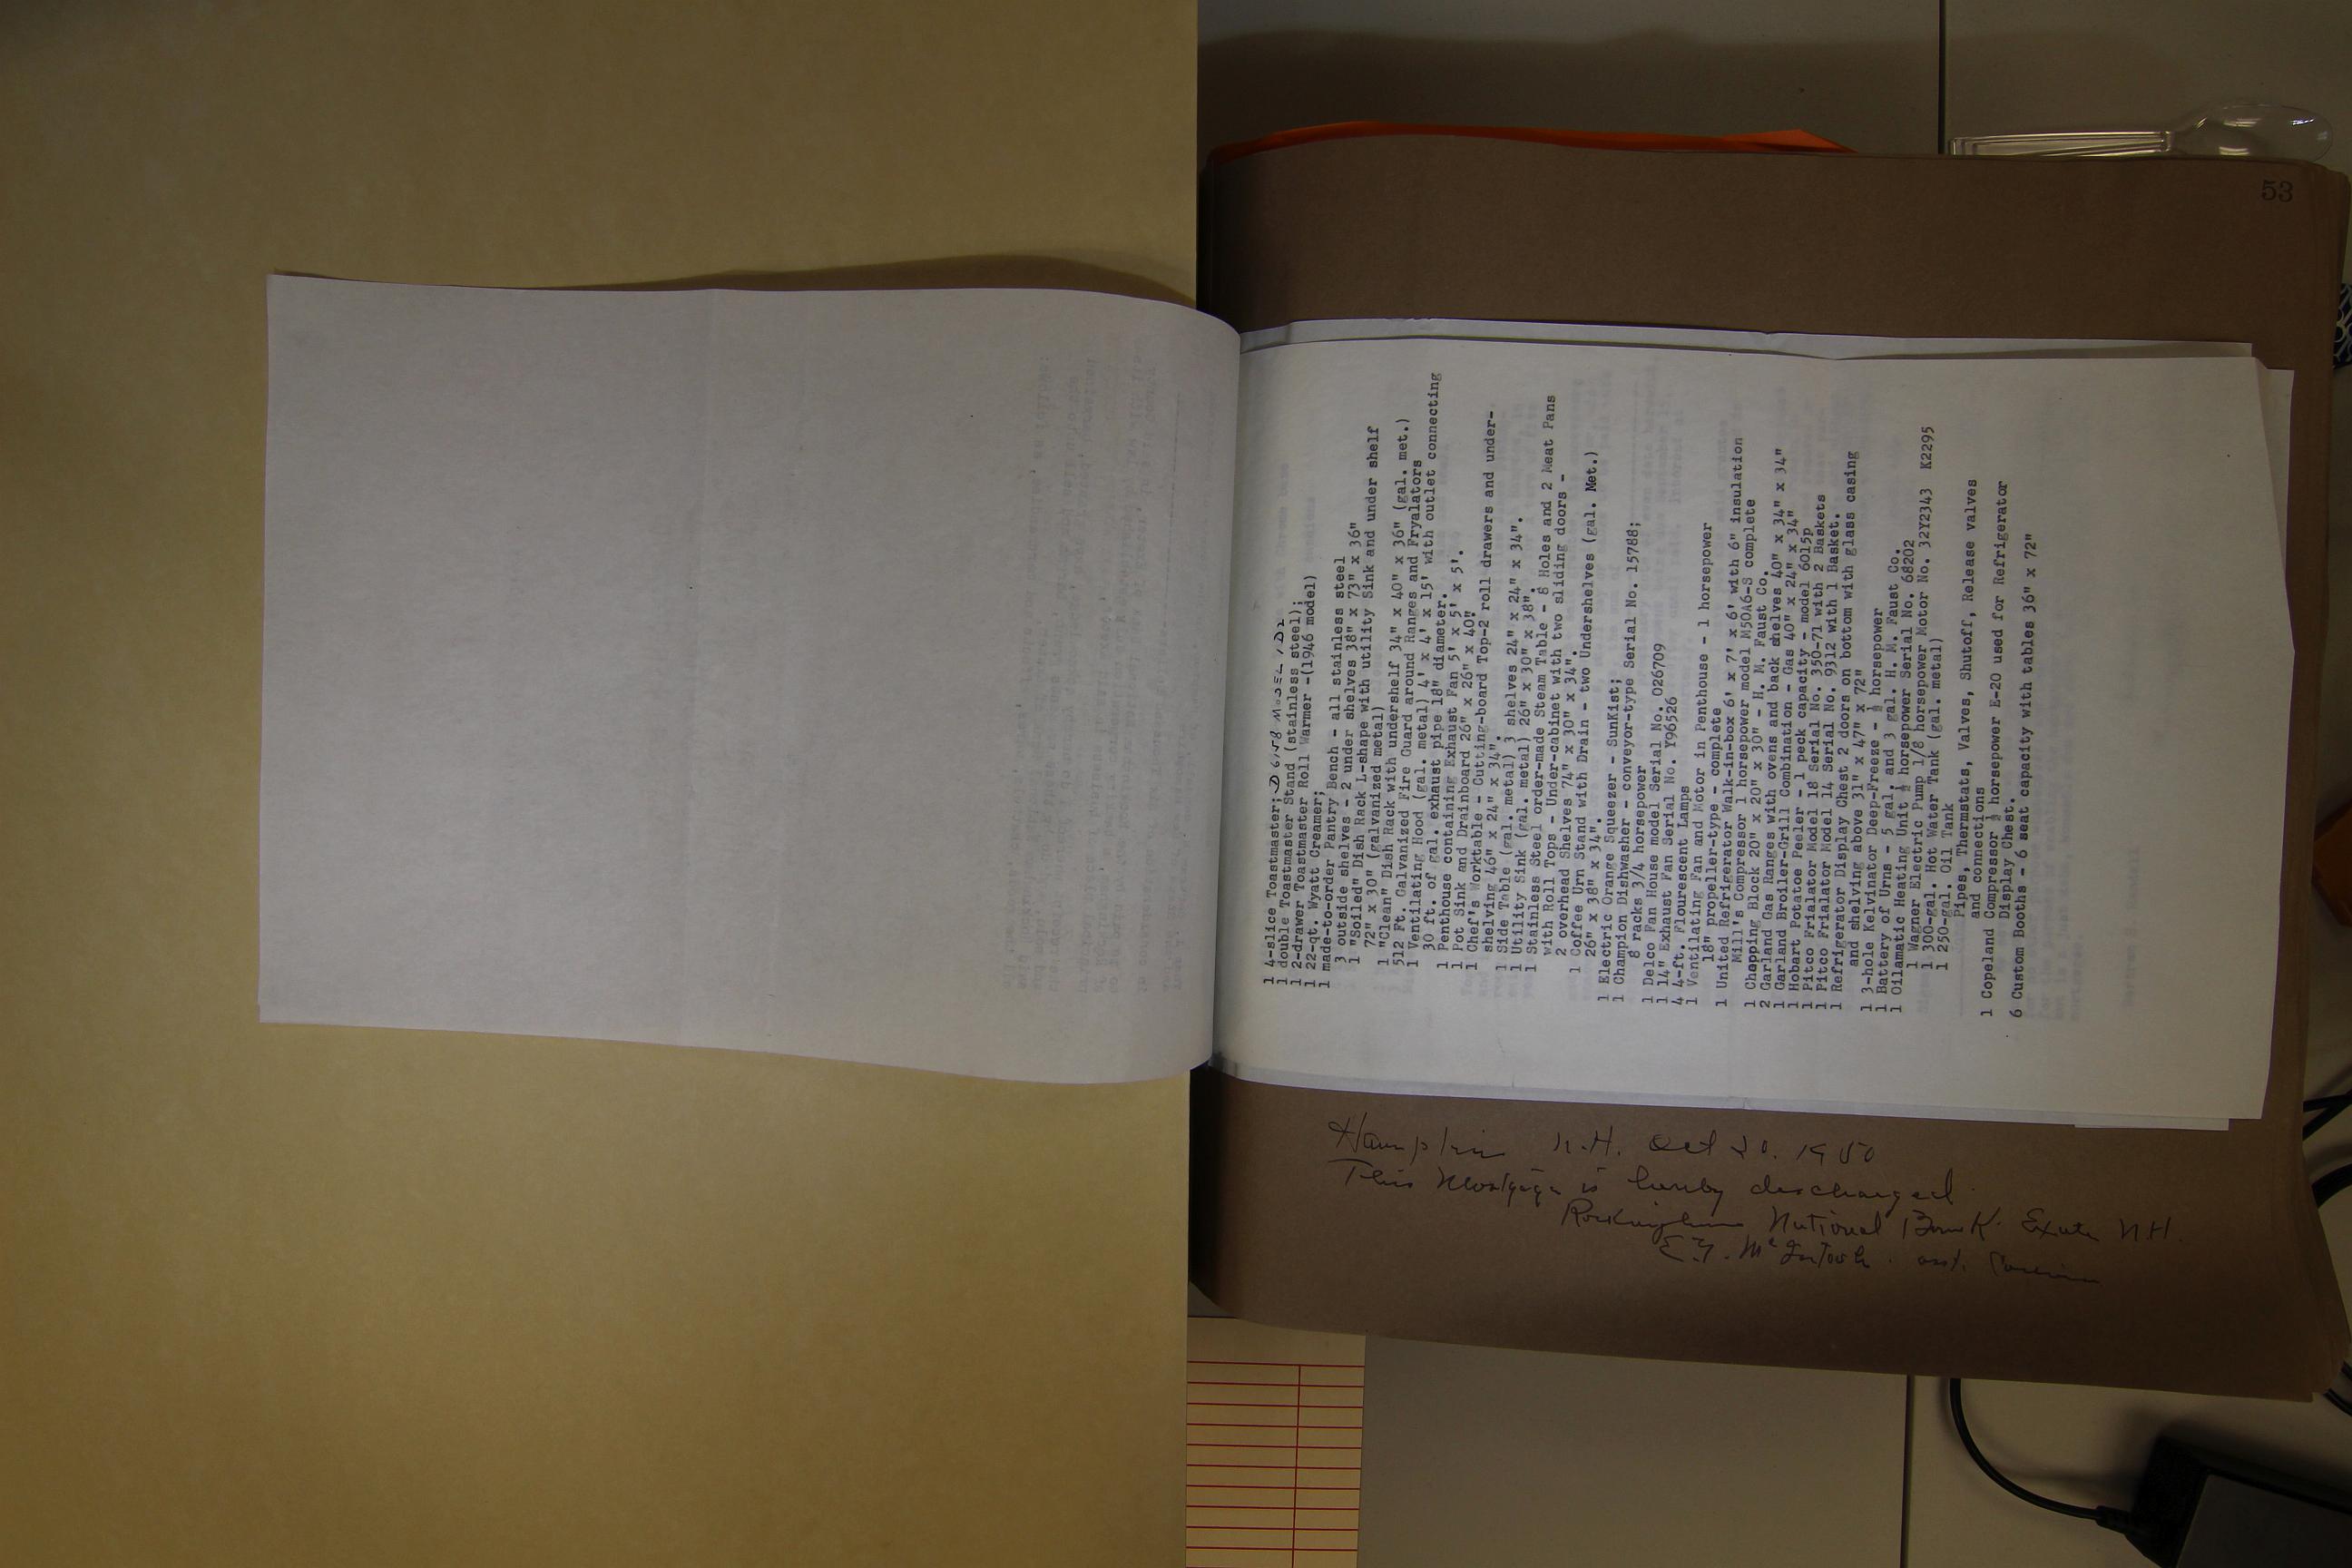 53
1 4-slice Toastmaster; D 6158 MODEL 1D2
1 double Toastmaster Stand (stainless steel);
1 2-drawer Toastmaster Roll Warmer -(1946 model)
1 22-qt. Wyatt Creamer;
1 made-to-order Pantry Bench - all stainless steel
3 outside shelves - 2 under shelves 38" x 73" x 36"
1 "Soiled" Dish Rack L-shape with utility Sink and under shelf
72" x 30" (galvanized metal)
1 "Clean" Dish Rack with undershelf 34" x 40" x 36" (gal. met.)
512 Ft. Galvanized Fire Guard around Ranges and Fryalators
1 Ventilating Hood (gal. metal) 4' x 4' x 15' with outlet connecting
30 ft. of gal. exhaust pipe 18" diameter.
1 Penthouse containing Exhaust Fan 5' x 5' x 5'.
1 Pot Sink and Drainboard 26" x 26" x 40"
1 Chef's Worktable - Cutting-board Top-2 roll drawers and under-
shelving 46" x 24" x 34".
1 Side Table (gal. metal) 3 shelves 24" x 24" x 34".
1 Utility Sink (gal. metal) 26" x 30" x 38".
1 Stainless Steel order-made Steam Table - 8 Holes and 2 Meat Pans
with Roll Tops - Under-cabinet with two sliding doors -
2 overhead Shelves 74" x 30" x 34".
1 Coffee Urn Stand with Drain - two Undershelves (gal. Met.)
26" x 38" x 34".
1 Electric Orange Squeezer - SunKist;
1 Champion Dishwasher - conveyor-type Serial No. 15788;
8 racks 3/4 horsepower
1 Delco Fan House model Serial No. 026709
1 14" Exhaust Fan Serial No. Y96526
4 4-ft. Flourescent Lamps
1 Ventilating Fan and Motor in Penthouse - 1 horsepower
18" propeller-type - complete
1 United Refrigerator Walk-in-box 6' x 7' x 6' with 6" insulation
Mill's Compressor 1 horsepower model M50A6-S complete
1 Chopping Block 20" x 20" x 30" - H. M. Faust Co.
2 Garland Gas Ranges with ovens and back shelves 40" x 34" x 34"
1 Garland Broiler-Grill Combination - Gas 40" x 24" x 34"
1 Hobart Potatoe Peeler - 1 peck capacity - model 6015p
1 Pitco Frialator Model 18 Serial No. 350-71 with 2 Baskets
1 Pitco Frialator Model 14 Serial No. 9312 with 1 Basket.
1 Refrigerator Display Chest 2 doors on bottom with glass casing
and shelving above 31" x 47" x 72"
1 3-hole Kelvinator Deep-Freeze - ½ horsepower
1 Battery of Urns - 5 gal. and 3 gal. H. M. Faust Co.
1 Oilamatic Heating Unit ½ horsepower Serial No. 68202
1 Wagner Electric Pump 1/8 horsepower Motor No. 32Y2343 K2295
1 300-gal. Hot Water Tank (gal. metal)
1 250-gal. Oil Tank
Pipes, Thermstats, Valves, Shutoff, Release valves
and connections
1 Copeland Compressor ½ horsepower E-20 used for Refrigerator
Display Chest.
6 Custom Booths - 6 seat capacity with tables 36" x 72"
Hampton N.H. Oct 20. 1950
This Mortgage is hereby discharged
Rockingham National Bank Exeter NH.
E.Y. McIntosh. asst. Cashier